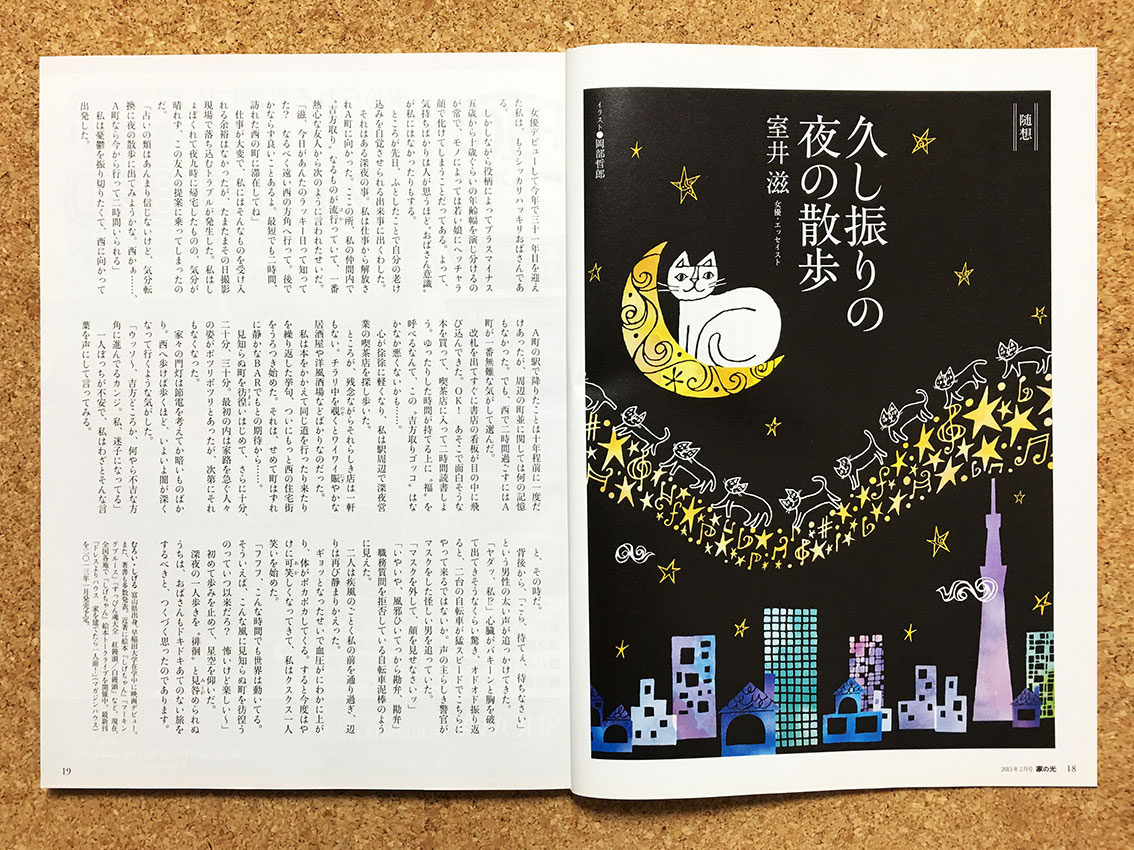 随想
久し振りの
夜の散歩
室井 滋 女優・エッセイスト
イラスト●岡部哲郎
2013年2月号 家の光 18
女優デビューして今年で三十一年目を迎え
た私は、もうシッカリハッキリおばさんであ
る。
しかしながら役柄によってプラスマイナス
五歳から十歳くらいの年齢幅を演じ分けるの
が常で、モノによっては若い娘にヘッチャラ
顔で化けてしまうことだってある。よって、
気持ちばかりは人が思うほど〝おばさん意識〟
が私にはなかったりもする。
ところが先日、ふとしたことで自分の老け
込みを自覚させられる出来事に出くわした。
それはある深夜の事。私は仕事から解放さ
れA町に向かった。ここの所、私の仲間内で
〝吉方取り〟なるものが流行っていて、一番
熱心な友人から次のように言われたせいだ。
「滋、今日があんたのラッキー日って知って
た? なるべく遠い西の方角へ行って。後で
かならず良いことあるよ。最短でも二時間、
訪れた西の町に滞在してね」
仕事が大変で、私にはそんなものを受け入
れる余裕はなかったが、たまたまその日撮影
現場で落ち込むトラブルが発生した。私はし
ょぼくれて夜九時に帰宅したものの、気分が
晴れず、この友人の提案に乗ってしまったの
だ。
「占いの類はあんまり信じないけど、気分転
換に夜の散歩に出てみようかな、西かぁ……、
A町なら今から行って二時間いられる」
私は憂鬱を振り切りたくて、西に向かって
出発した。
A町の駅で降りたことは十年程前に一度だ
けあったが、周辺の町並に関しては何の記憶
もなかった。でも、西で二時間過ごすにはA
町が一番無難な気がして選んだ。
改札を出てすぐに書店の看板が目の中に飛
び込んできた。OK! あそこで面白そうな
本を買って、喫茶店に入って二時間読書しよ
う。ゆったりした時間が持てる上に〝福〟を
呼べるなんて、この〝吉方取りゴッコ〟はな
かなか悪くないかも……。
心が徐徐に軽くなり、私は駅周辺で深夜営
業の喫茶店を探し歩いた。
ところが、残念ながらそれらしき店は一軒
もない。チラリ中を覗くとワイワイ賑やかな
居酒屋や洋風酒場などばかりなのだった。
私は本をかかえて同じ道を行ったり来たり
を繰り返した挙句、ついにもっと西の住宅街
をうろつき始めた。それは、せめて町はずれ
に静かなBARでもとの期待から……。
見知らぬ町を彷徨いはじめて、さらに十分、
二十分、三十分。最初の内は家路を急ぐ人々
の姿がポツリポツリとあったが、次第にそれ
もなくなった。
家々の門灯は節電を考えてか暗いものばか
り。西へ歩けば歩くほど、いよいよ闇が深く
なって行くような気がした。
「ウッソ〜、吉方どころか、何やら不吉な方
角に進んでるカンジ。私、迷子になってる」
一人ぼっちが不安で、私はわざとそんな言
葉を声にして言ってみる。
と、その時だ。
背後から、「こら、待てぇ、待ちなさい」
という男性の太い声が追っかけてきた。
「ヤダッ、私!?」心臓がバキーンと胸を破っ
て出てきそうなくらい驚き、オドオド振り返
ると、二台の自転車が猛スピードでこちらに
やって来るではないか。声の主らしき警官が
マスクをした怪しい男を追っていた。
「マスクを外して、顔を見せなさいッ」
「いやいや、風邪ひいてっから勘弁、勘弁」
職務質問を拒否している自転車泥棒のよう
に見えた。
二人は疾風のごとく私の前を通り過ぎ、辺
りは再び静まりかえった。
ギョッとなったせいで血圧がにわかに上が
り、体がポカポカしてくる。すると今度はや
けに可笑しくなってきて、私はクスクス一人
笑いを始めた。
「フフフ、こんな時間でも世界は動いてる。
そういえば、こんな風に見知らぬ町を彷徨う
のっていつ以来だろ? 怖いけど楽しい〜」
初めて歩みを止めて、星空を仰いだ。
深夜の一人歩きを〝徘徊〟と見咎められぬ
うちは、おばさんもドキドキあてのない旅を
するべきと、つくづく思ったのであります。
むろい・しげる 富山県出身。早稲田大学在学中に映画デビュー。
また、著書も多数発表。近著に絵本『しげちゃん』『マーキン
グブルース』『すっぴん魂大全 紅饅頭/白饅頭』など。現在、
全国各地で「しげちゃん」絵本トークライブを開催中。最新刊
『ドレスよりハウス 家を建てたら一人前!』(マガジンハウス)
を二〇一三年一月発売予定。
19